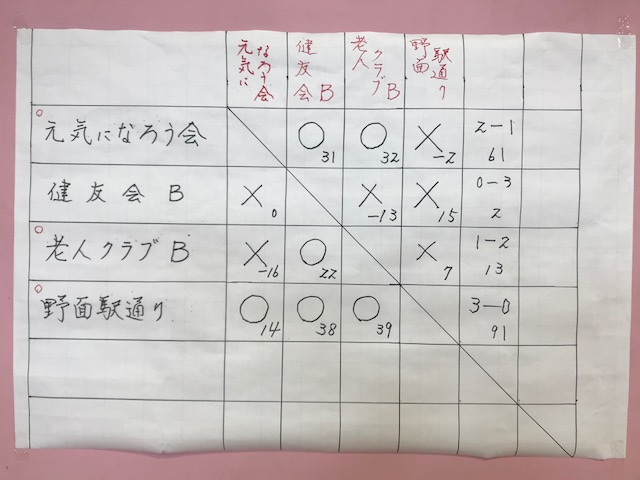 元気に なろう会 健友会B 老人 クラブB 野面 駅通り
元気になろう会 ○31 ○32 ×-2 2-1 61
健友会 B ×0 ×-13 ×15 0-3 2
老人クラブB ×-16 ○22 ×7 1-2 13
野面駅通り ○14 ○38 ○39 3-0 91